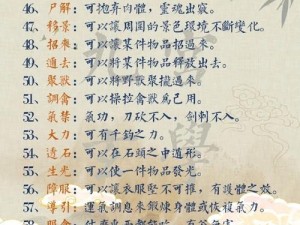 46、尸解：可拋弃肉體，靈魂出竅。
47、移景：可以讓周圍的景色環境不斷變化。
48、招來：可以讓某件物品招過來。
49、遁去：可以將某件物品釋放出去。
50、聚獸：可以將野獸聚攏過來。
51、調禽：可以操控禽獸爲己用。
52、氣禁：氣功，刀砍不入，劍刺不入。
53、大力：可有千鈞之力。
54、透石：可以在石頭之中遁形。
55、生光：可以使一件物品發光。
56、障服：可以讓衣服堅不可摧，有護體之效。
57、導引：運氣調息來鍛煉身體或恢複氣力。
58、服食：